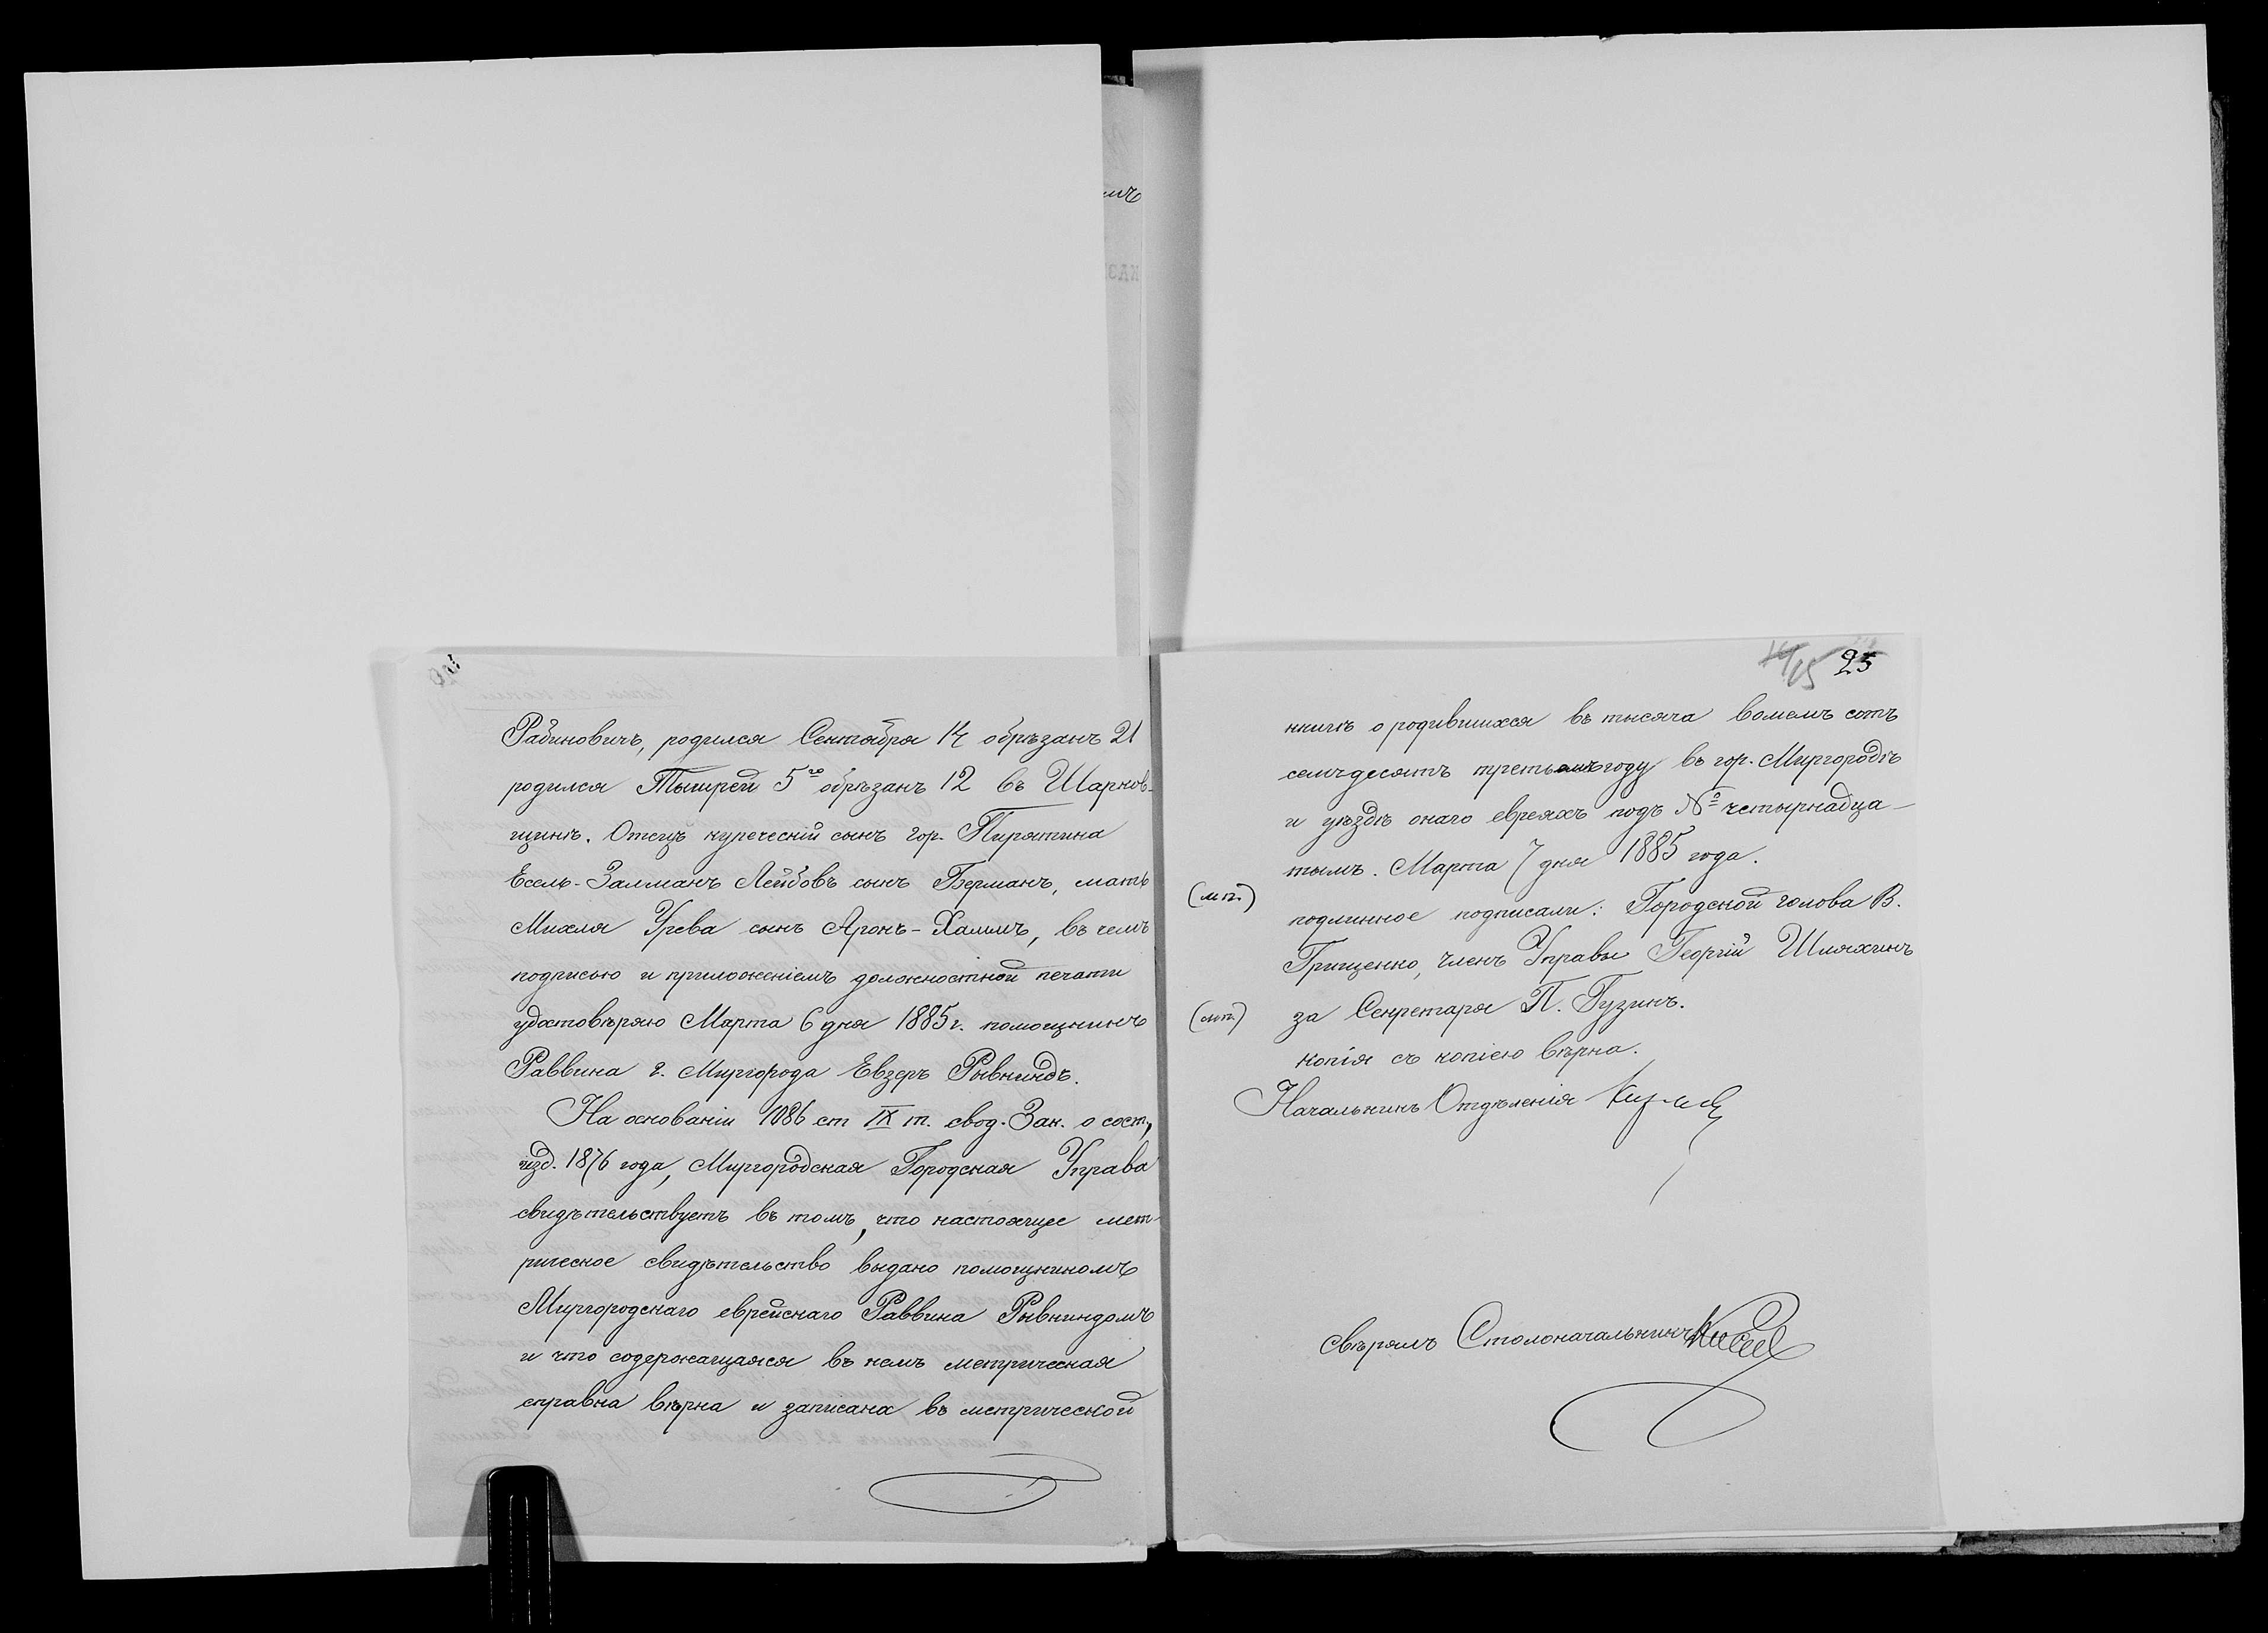 Рабиновичъ, родился Сентября 14 обрѣзанъ 21
родился Тышрей 5го обрѣзанъ 12 въ Шарков-
щинѣ. Отецъ купеческій сынъ гор. Пирятина
Есель-Залманъ Лейбовъ сынъ Берманъ, мать
Михля Урева сынъ Аронъ-Хаимъ, въ чемъ
подписью и приложеніемъ должностной печати
удостовѣряю Марта 6 дня 1885 г. помощникъ
Раввина г. Миргорода Евзеръ Рывкиндъ.
На основаніи 1086 ст IX т. свод. Зак. о сост,
изд. 1876 года, Миргородская Городская Управа
свидѣтельствуетъ въ томъ, что настоящее мет-
рическое свидѣтельство выдано помощникомъ
Миргородскаго еврейскаго Раввина Рывкиндомъ
и что содержащаяся въ немъ метрическая
справка вѣрна и записана въ метрической
25
книгѣ о родившихся въ тысяча восемь сотъ
семьдесятъ третьемъ году въ гор. Миргородѣ
и уѣздѣ онаго евреяхъ подъ № четырнадца-
тымъ. Марта 7 дня 1885 года.
(м.п.) подлинное подписали: Городской голова В.
Грищенко, членъ Управы Георгій Шляхинъ
(м.п.) за Секретаря П. Гузинъ.
копія съ копіею вѣрна.
Начальникъ Отдѣленія
свѣрялъ Столоначальникъ